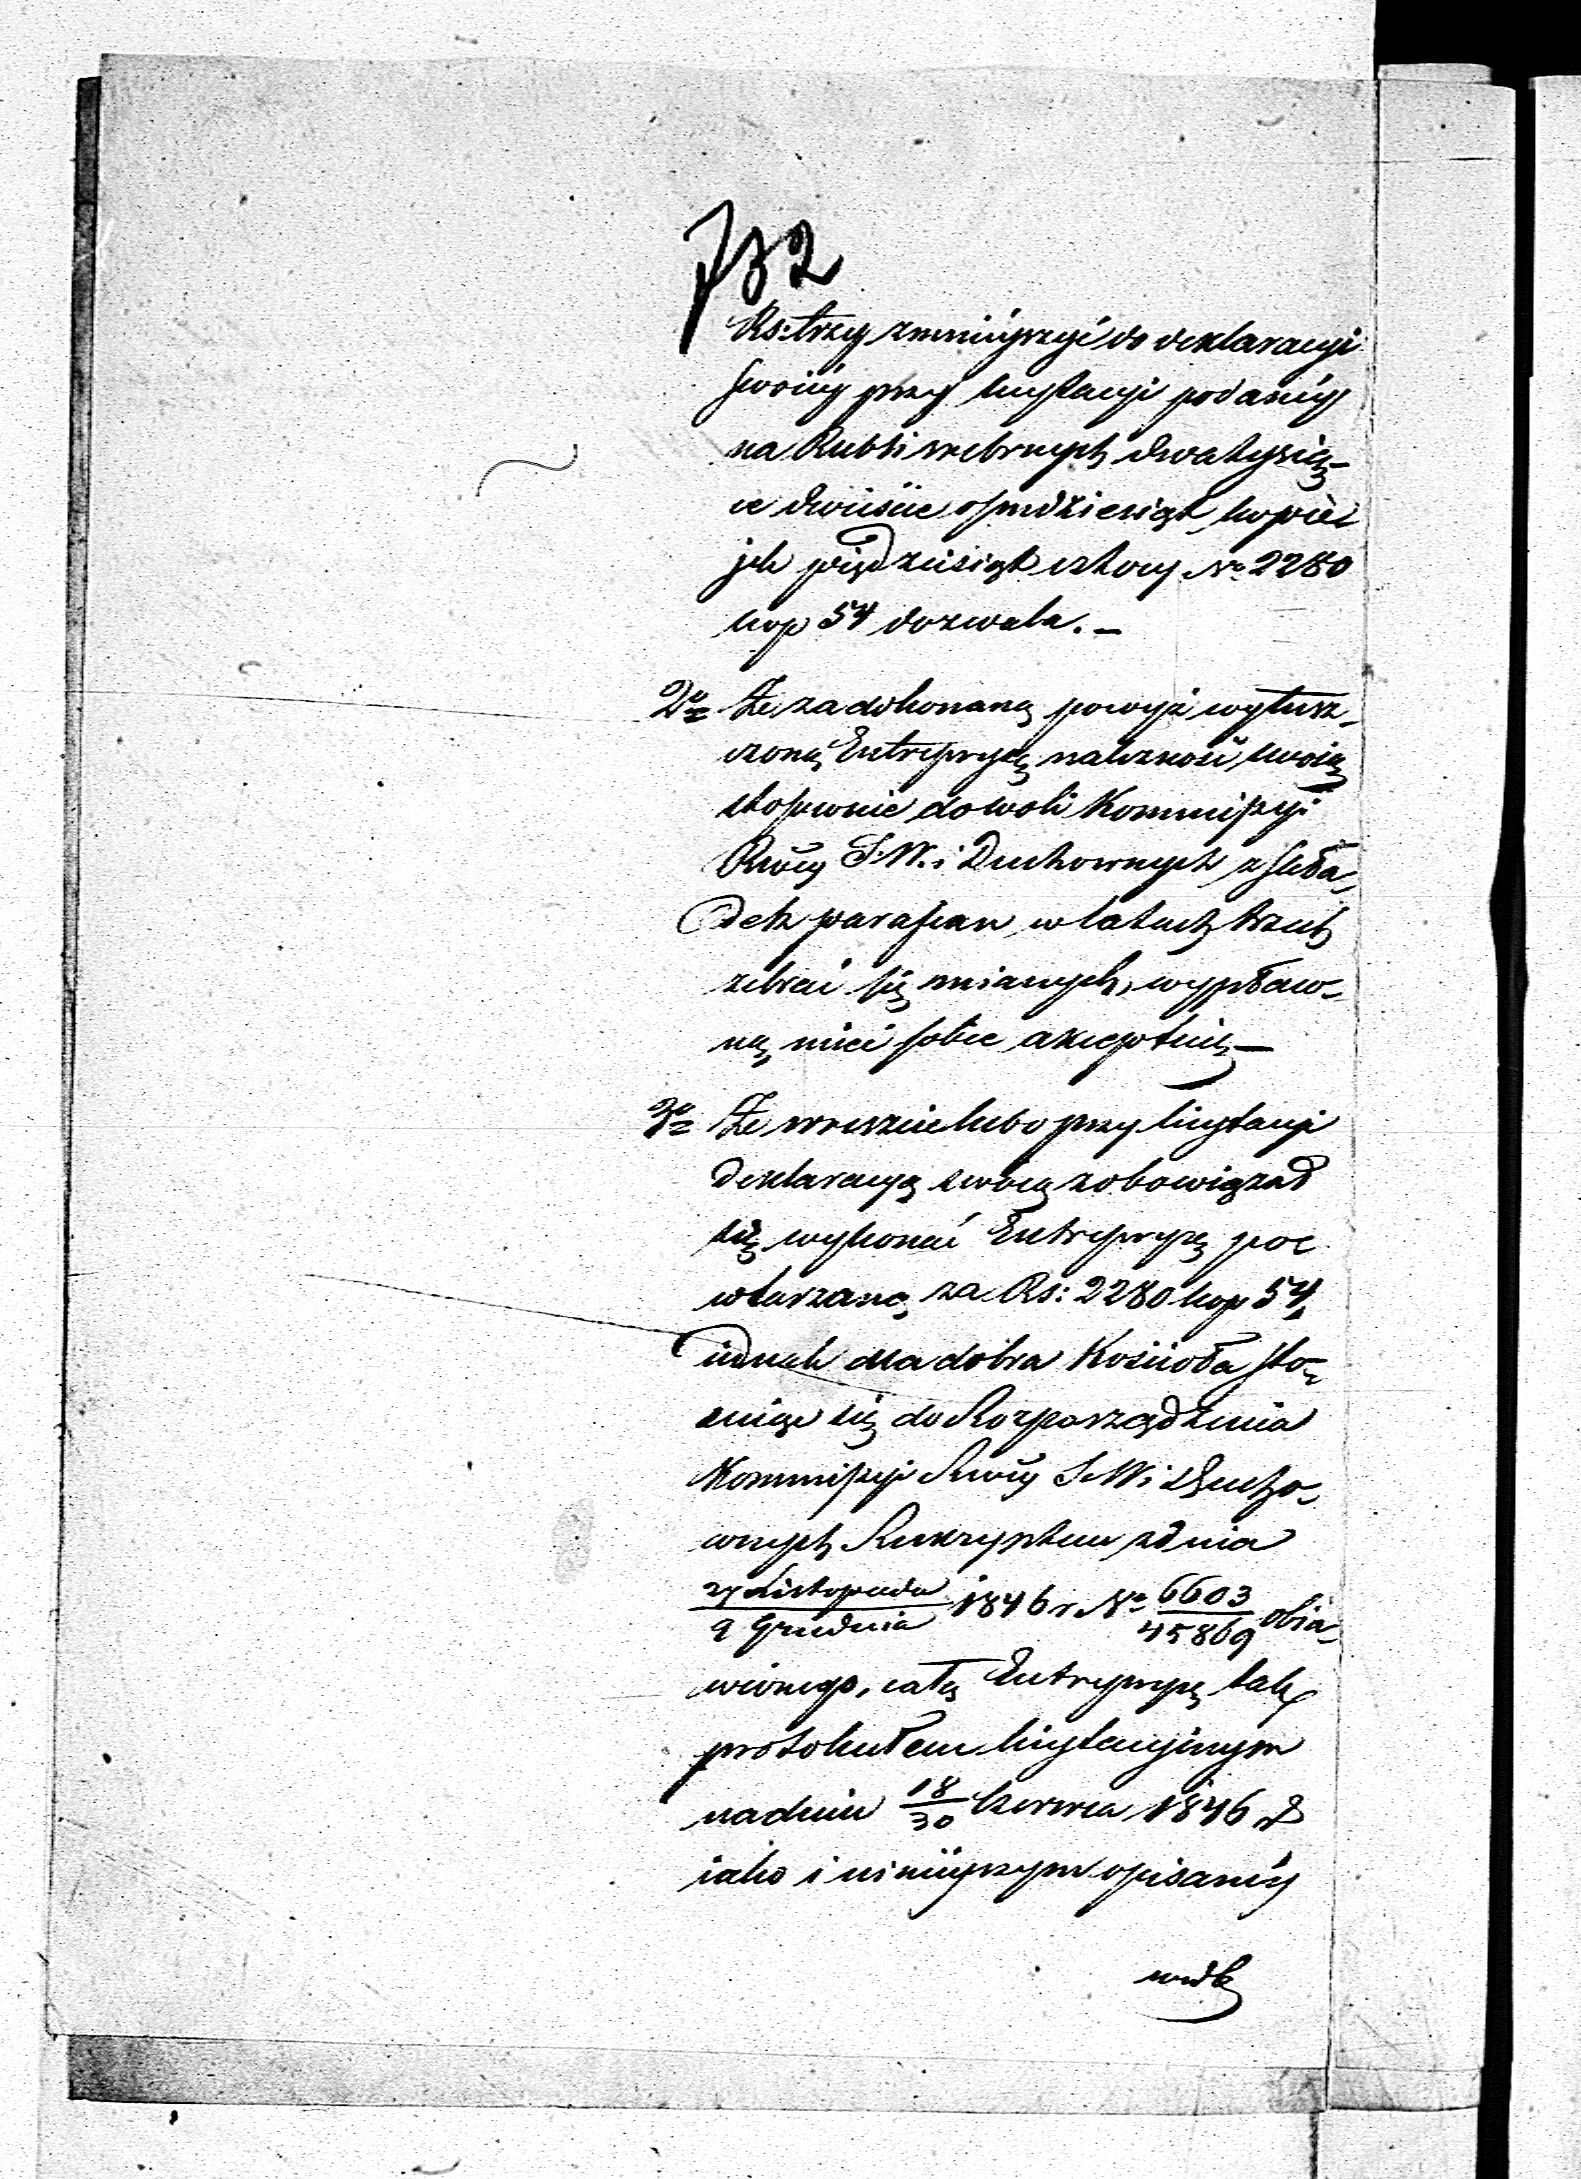 732
Rs: trzy zmnieyszyć do deklaracyi
swoiey przy licytacyi podaney
na Rubli srebrnych dwatysią-
ce dwieście ośmdziesiąt, kopie-
jek pięćdziesiąt cztery Nº 2280
kop 54 dozwala. —
2º Że za dokonaną powyż wyłusz-
czoną Entrepryzę należność swoią
stosownie do woli Kommissyi
Rwey S. W. i Duchownych z skła-
dek parafian w latach trzech
zebrać się mianych, wypłaco-
ną mieć sobie akceptuie —
3º Że wreszcie lubo przy licytacyi
deklaracyą swoią zobowiązał
się wykonać Entrepryzę po-
wtarzaną za Rs: 2280 kop 54,
iednak dla dobra Kościoła sto-
suiąc się do Rozporządzenia
Kommissyi Rwey S. W. i Ducho-
wnych Reskryptem z dnia
27 Listopada / 9 Grudnia 1846 r. Nº 6603 / 45869 obia-
wionego, całą Entrepryzę tak
protokułem licytacyinym
na dniu 18/30 Czerwca 1846 r
iako i ninieyszym opisaney
wedle